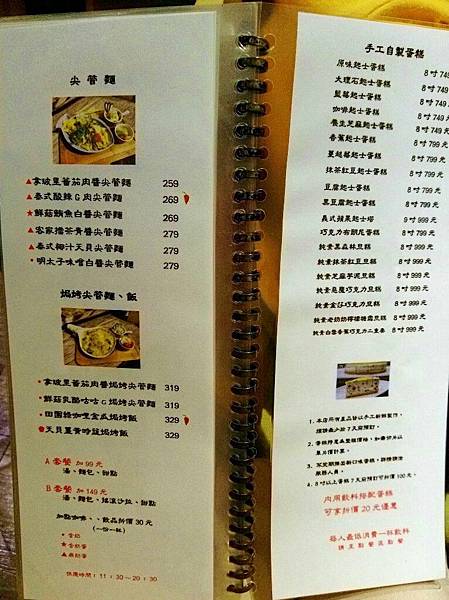 尖管麵
▲拿坡里蕃茄肉醬尖管麵 259
▲泰式酸辣G肉尖管麵 269
★鮮菇鮪魚白醬尖管麵 269
▲客家擂茶青醬尖管麵 279
▲泰式椰汁天貝尖管麵 279
•明太子味噌白醬尖管麵 279
焗烤尖管麵、飯
•拿坡里蕃茄肉醬焗烤尖管麵 319
•鮮菇乳酪咕咕G焗烤尖管麵 319
•田園綠咖哩金瓜焗烤飯 329
天貝薑黃時蔬焗烤飯 329
A 套餐 加 99元
湯、麵包、甜點
B 套餐 加 149元
湯、麵包、搖滾沙拉、甜點
加點咖啡、、飲品折價 30 元
(一份一杯)
•含奶
★含奶蛋
▲無奶蛋
供應時間:11:30~20:30
手工自製蛋糕
原味起士蛋糕 8吋 749
大理石起士蛋糕 8吋 749
藍莓起士蛋糕 8吋 749
咖啡起士蛋糕 8吋 749
養生芝麻起士蛋糕 8吋 749
香蕉起士蛋糕 8吋 799
蔓越莓起士蛋糕 8吋 799 元
抹茶紅豆起士蛋糕 8吋 799 元
豆腐起士蛋糕 8吋 799 元
黑豆腐起士蛋糕 8吋 799 元
義式蘋果起士塔 9吋 999 元
巧克力布朗尼蛋糕 8吋 999 元
純素黑森林豆糕 8吋 999 元
純素抹茶紅豆豆糕 8吋 999 元
純素芝麻芋泥豆糕 8吋 999 元
純素惡魔巧克力豆糕 8吋 999 元
純素金莎巧克力豆糕 8吋 999 元
純素老奶奶檸檬糖霜豆糕 8吋 999 元
純素白雪香蕉巧克力二重奏 8吋 999 元
1.本店所有產品皆以手工新鮮製作,
煩請最少於7天前預訂。
2.蛋糕標是為整模價格,如需切片以
單片價計算。
3.不定期推出新口味蛋糕,詳情請洽
服務人員。
4.8吋以上蛋糕7天前預訂可折價 100元。
內用飲料搭配蛋糕
可享折價 20 元優惠
每人最低消費一杯飲料
請至點餐區點餐